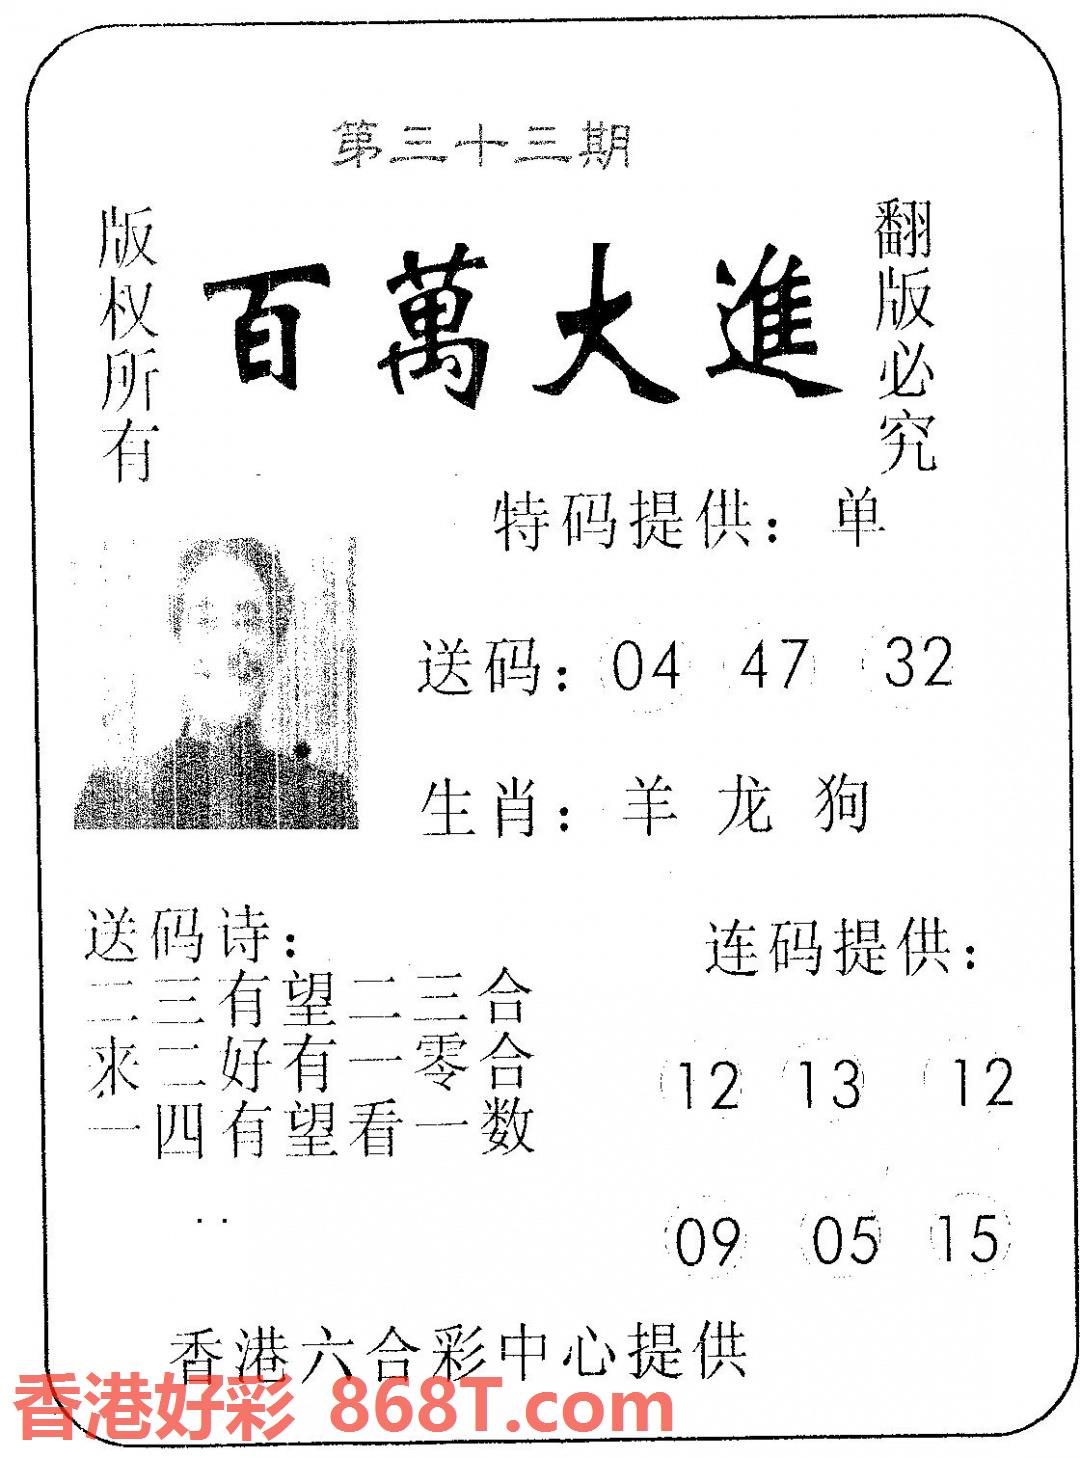 第三十三期
版权所有
百萬大進
翻版必究
特码提供：单
送码：04 47 32
生肖：羊 龙 狗
送码诗：
二三有望二三合
来二好有一零合
一四有望看一数
连码提供：
12 13 12
09 05 15
香港六合彩中心提供
香港好彩 868T.com